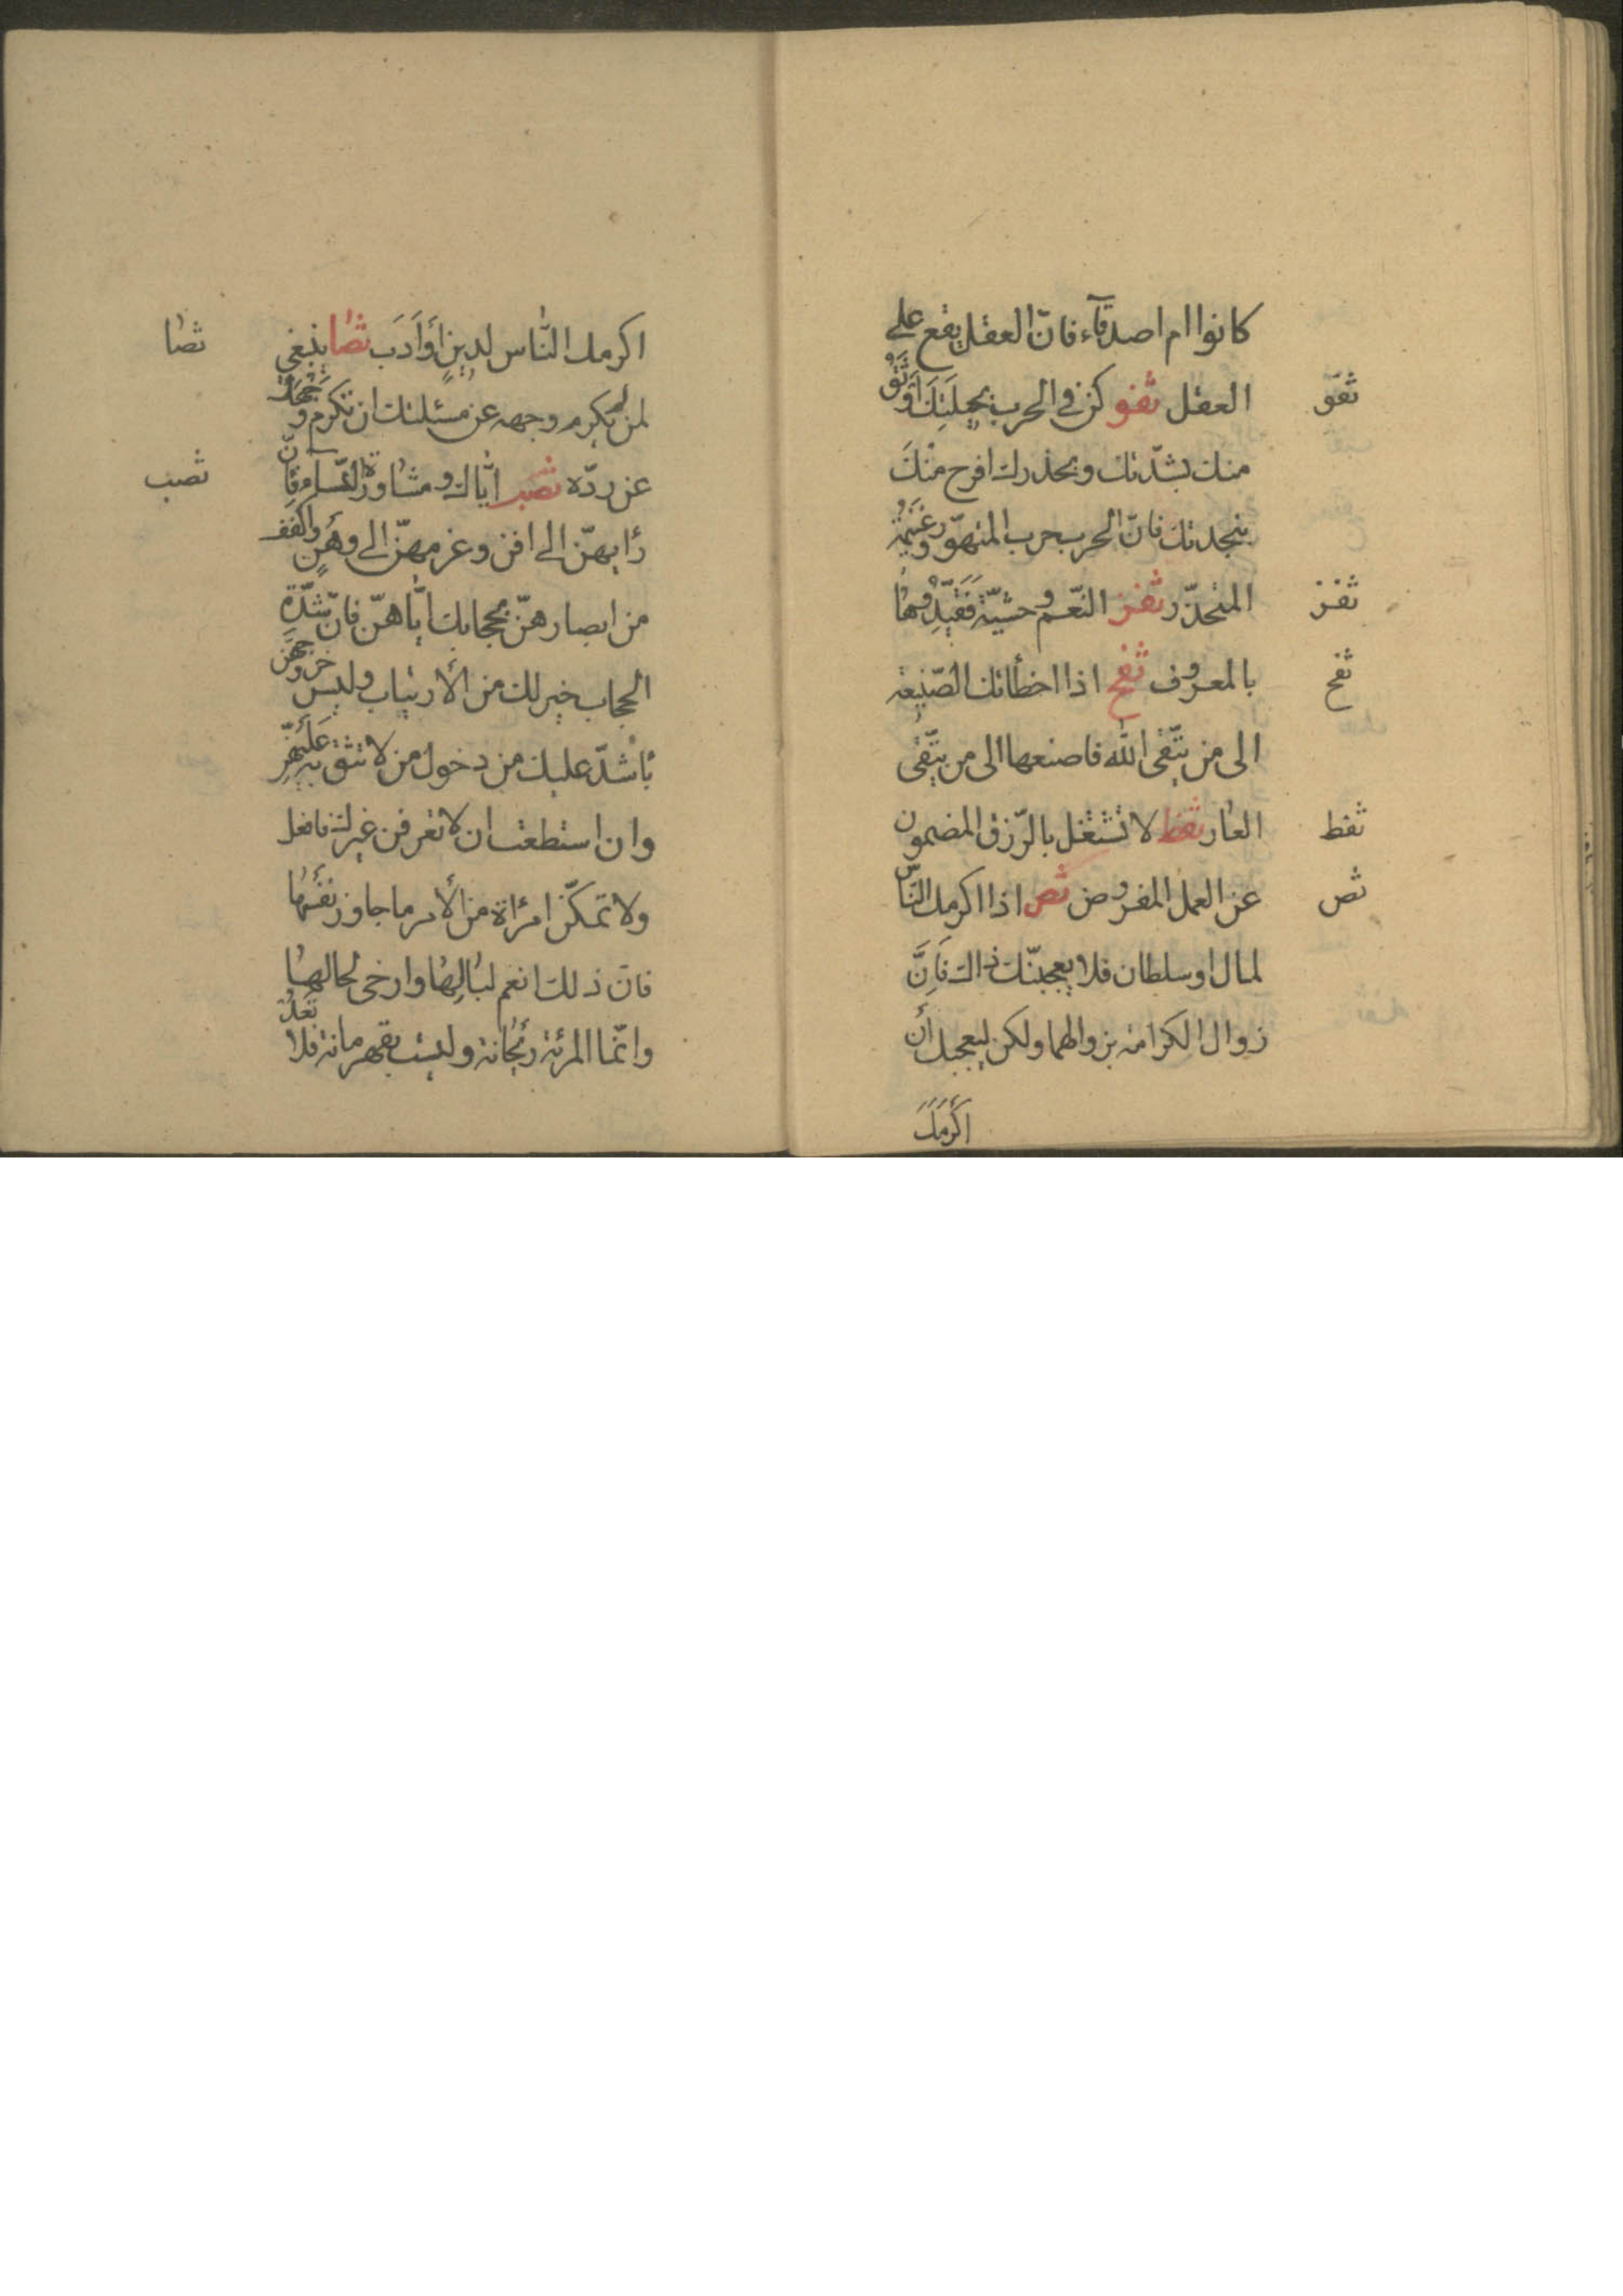 كانوا ام اصدقآء فانّ العقل يقع على
ثفو
العقل ثفو كن فى الحرب بحيلَتِكَ اَوثَقُ
منك بشدّتك وبحذرك افرح منْكَ
بنجدتك فانّ الحرب حرب المتهوّر وغَنيمَةُ
ثفز
المتحذّر ثفز النّعم وحشيّة فَقَيِّدُوهَا
ثفح
بالمعروف ثفح اذا اخطأتك الصّنيعة
الى من يتّقى اللّه فاصنعها الى من يتّقى
ثفط
العار ثفط لا تشتغل بالرّزق المضمون
ثص
عن العمل المفروض ثص اذا اكرمك النّاس
لمال او سلطان فلا يعجبنّك ذاك فَاِنَّ
زوال الكرامة بزوالهما ولكن ليعجبك اَن
اَكْرَمَكَ
ثصا
اكرمك النّاس لدينٍ اَو اَدَب ثصا ينبغى
لمن لم يكرم وجهه عن مسئلتك ان تكرم وَجْهَكَ
ثصب
عن ردّه ثصب ايّاك ومشاورة النّسآء فانّ
رأيهنّ الى افن وعزمهنّ الى وهَنٍ واكفف
من ابصارهنّ بحجابك ايّاهنّ فانّ شدّة
الحجاب خير لك من الأرتياب وليس خروجهنّ
بأشدّ عليك من دخول من لا تثق به عَلَيْهِنَّ
وان استطعت ان لا تعرفن غيرك فافعل
ولا تمكّن امرأة من الأمر ما جاوز نفسَها
فانّ ذلك انعم لبالِها وارخى لحالها
وانّما المرئة ريحانة وليست بقهرمانة فلا تَعْدُ